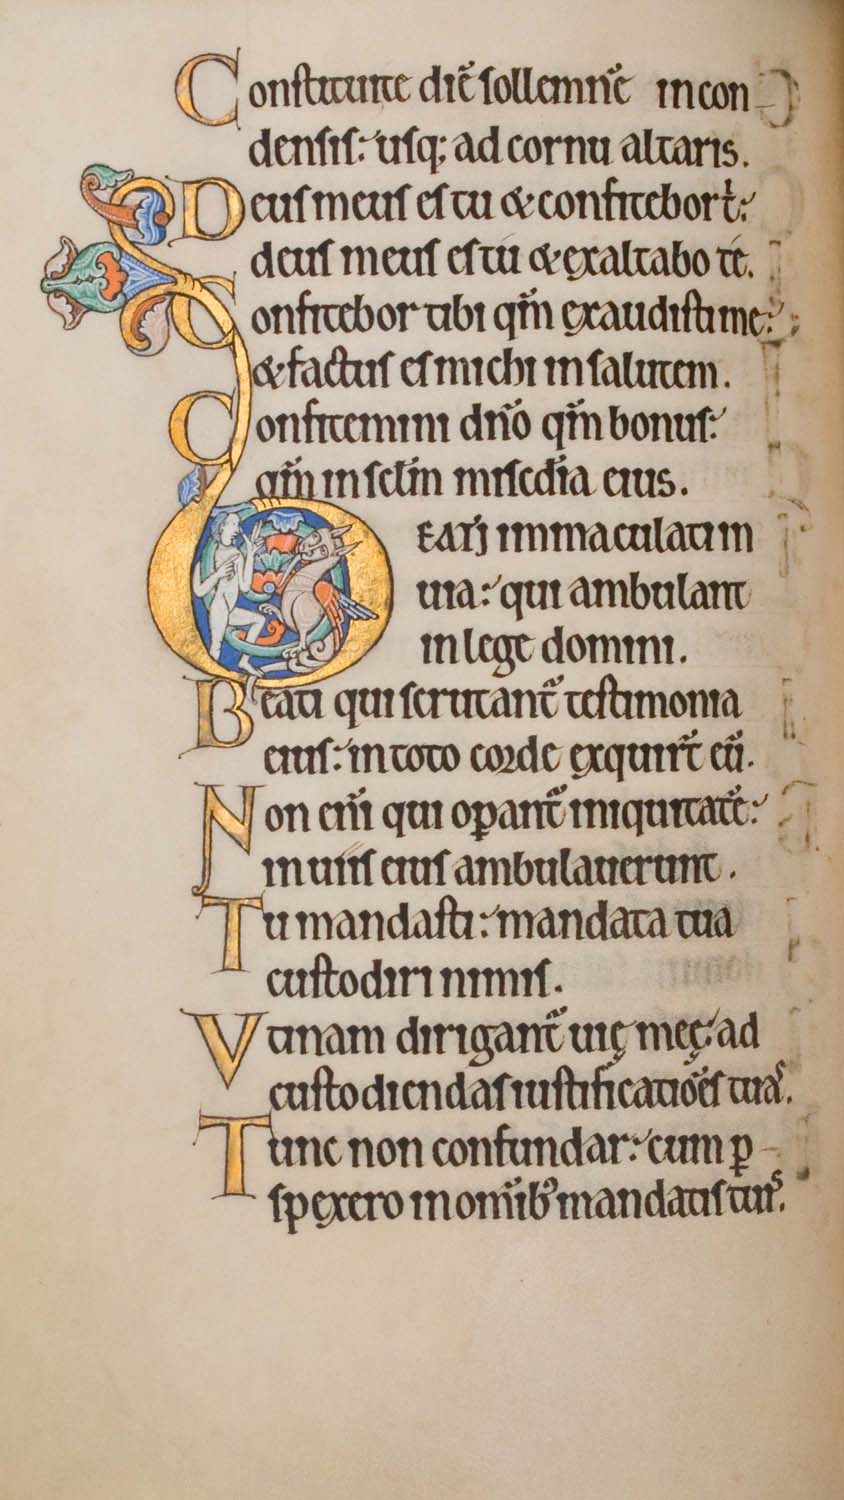 Constituite diē sollemnē in con
densis: usq; ad cornu altaris.
Deus meus es tu & confitebor t̄:
deus meus es tu & exaltabo te.
Confitebor tibi qm̄ exaudisti me:
& factus es michi in salutem.
Confitemini dn̄o qm̄ bonus:
qm̄ in sclm̄ misedia eius.
BEATI immaculati in
uia: qui ambulant
in lege domini.
Beati qui scrutant̄ testimonia
eius: in toto corde exquirt̄ eū.
Non eni qui oꝑant̄ iniquitatē:
in uiis eius ambulauerunt.
Tu mandasti: mandata tua
custodiri nimis.
Vtinam dirigant̄ uię meę: ad
custodiendas iustificatiōes tuas.
Tunc non confundar: cum ꝑ
spexero in omīb; mandatis tuis.